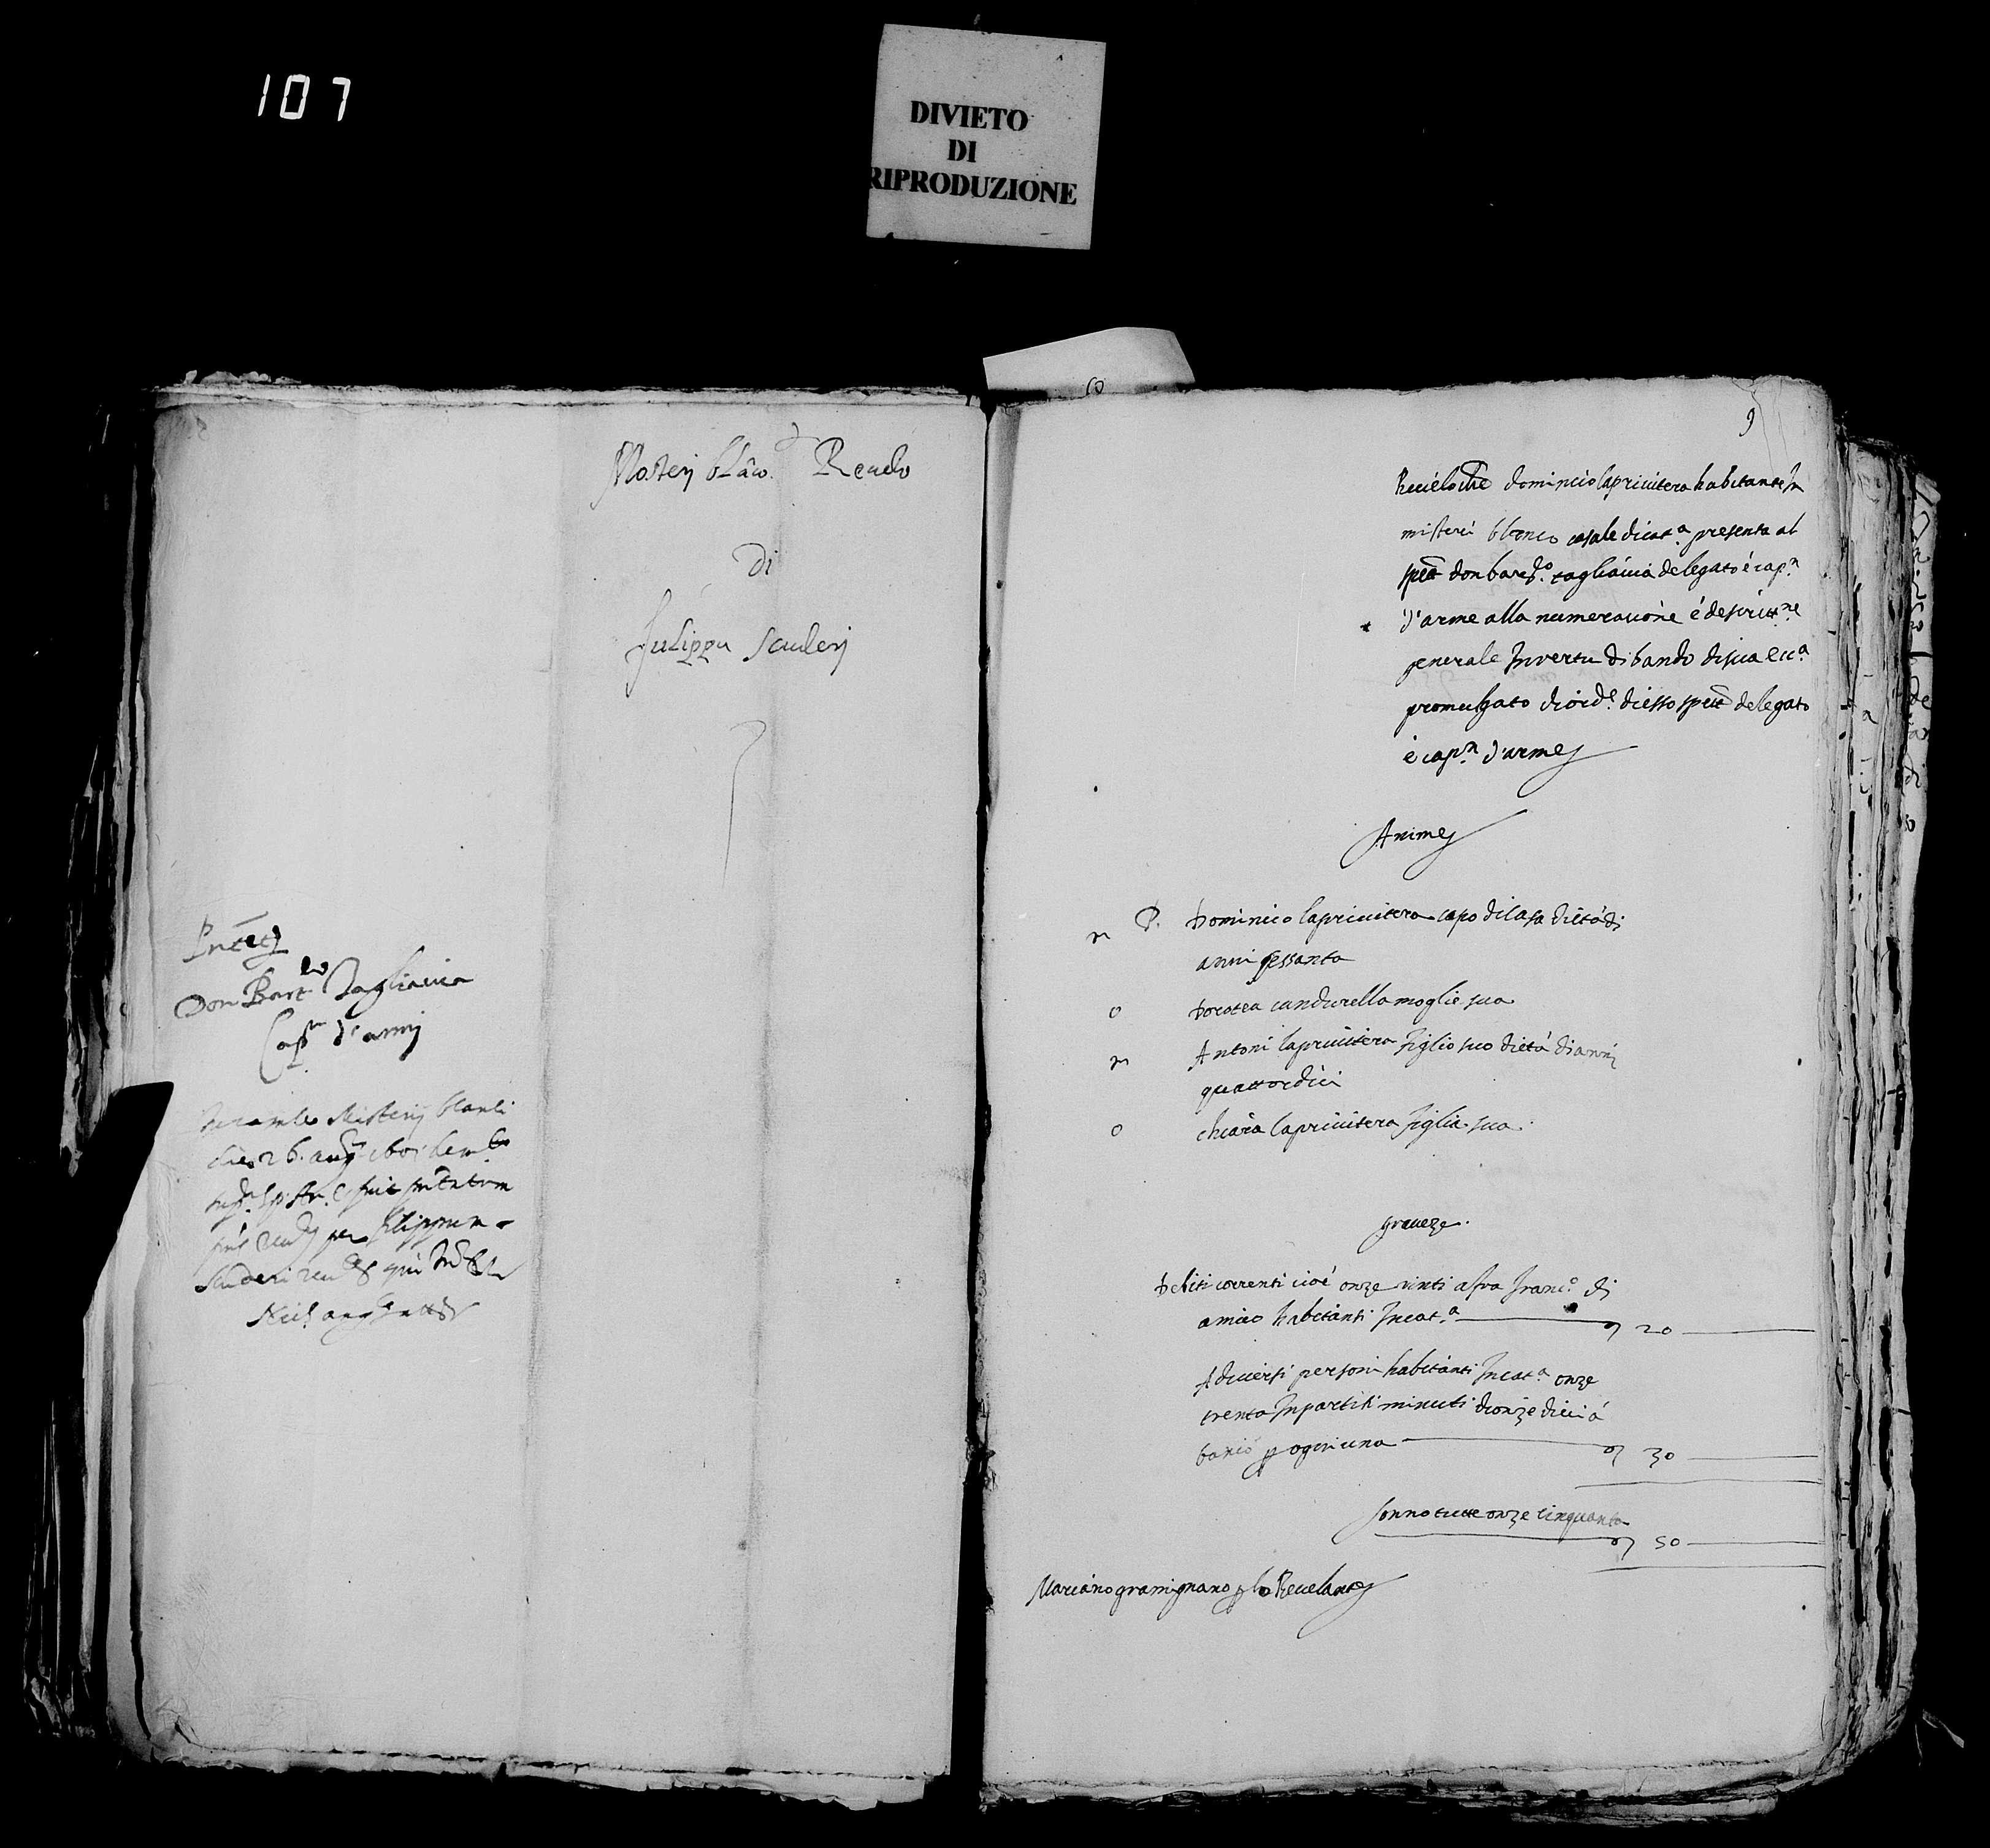 107
DIVIETO
DI
RIPRODUZIONE
Misterj blāco. Reuelo
Di
Filippu Scuderj
Don Bart.eo Tagliauia
Cap.n d'armj
Misterij blanci
die 26. aug.
per Philippum
Scuderi
9
Reuelo che dominicò lapriuitera habitante In
misteri blanco casale dicat.a presenta al
spett don bar.do tagliauia delegato è cap.n
d'arme alla numeratione è descritt.ne
generale Invertu di bando di sua ecc.a
promulgato di ord.e di esso spett delegato
è cap.n d'arme
Anime
m P. Dominico lapriuitera capo di casa di età di
anni sessanta
o Dorotea candurella moglie sua
m Antoni lapriuitera figlio suo di età di anni
quattordici
o chiara lapriuitera figlia sua.
graueze.
Debiti correnti cioè onze vinti a fra Franc.o di
amico habitanti Incat.a 20
A diuersi personi habitanti Incat.a onze
trenta Inpartiti minuti di onze dieci à
bascio p ogni una 30
sonno tutte onze cinquanta
50
Mariano gramignano p lo Reuelante